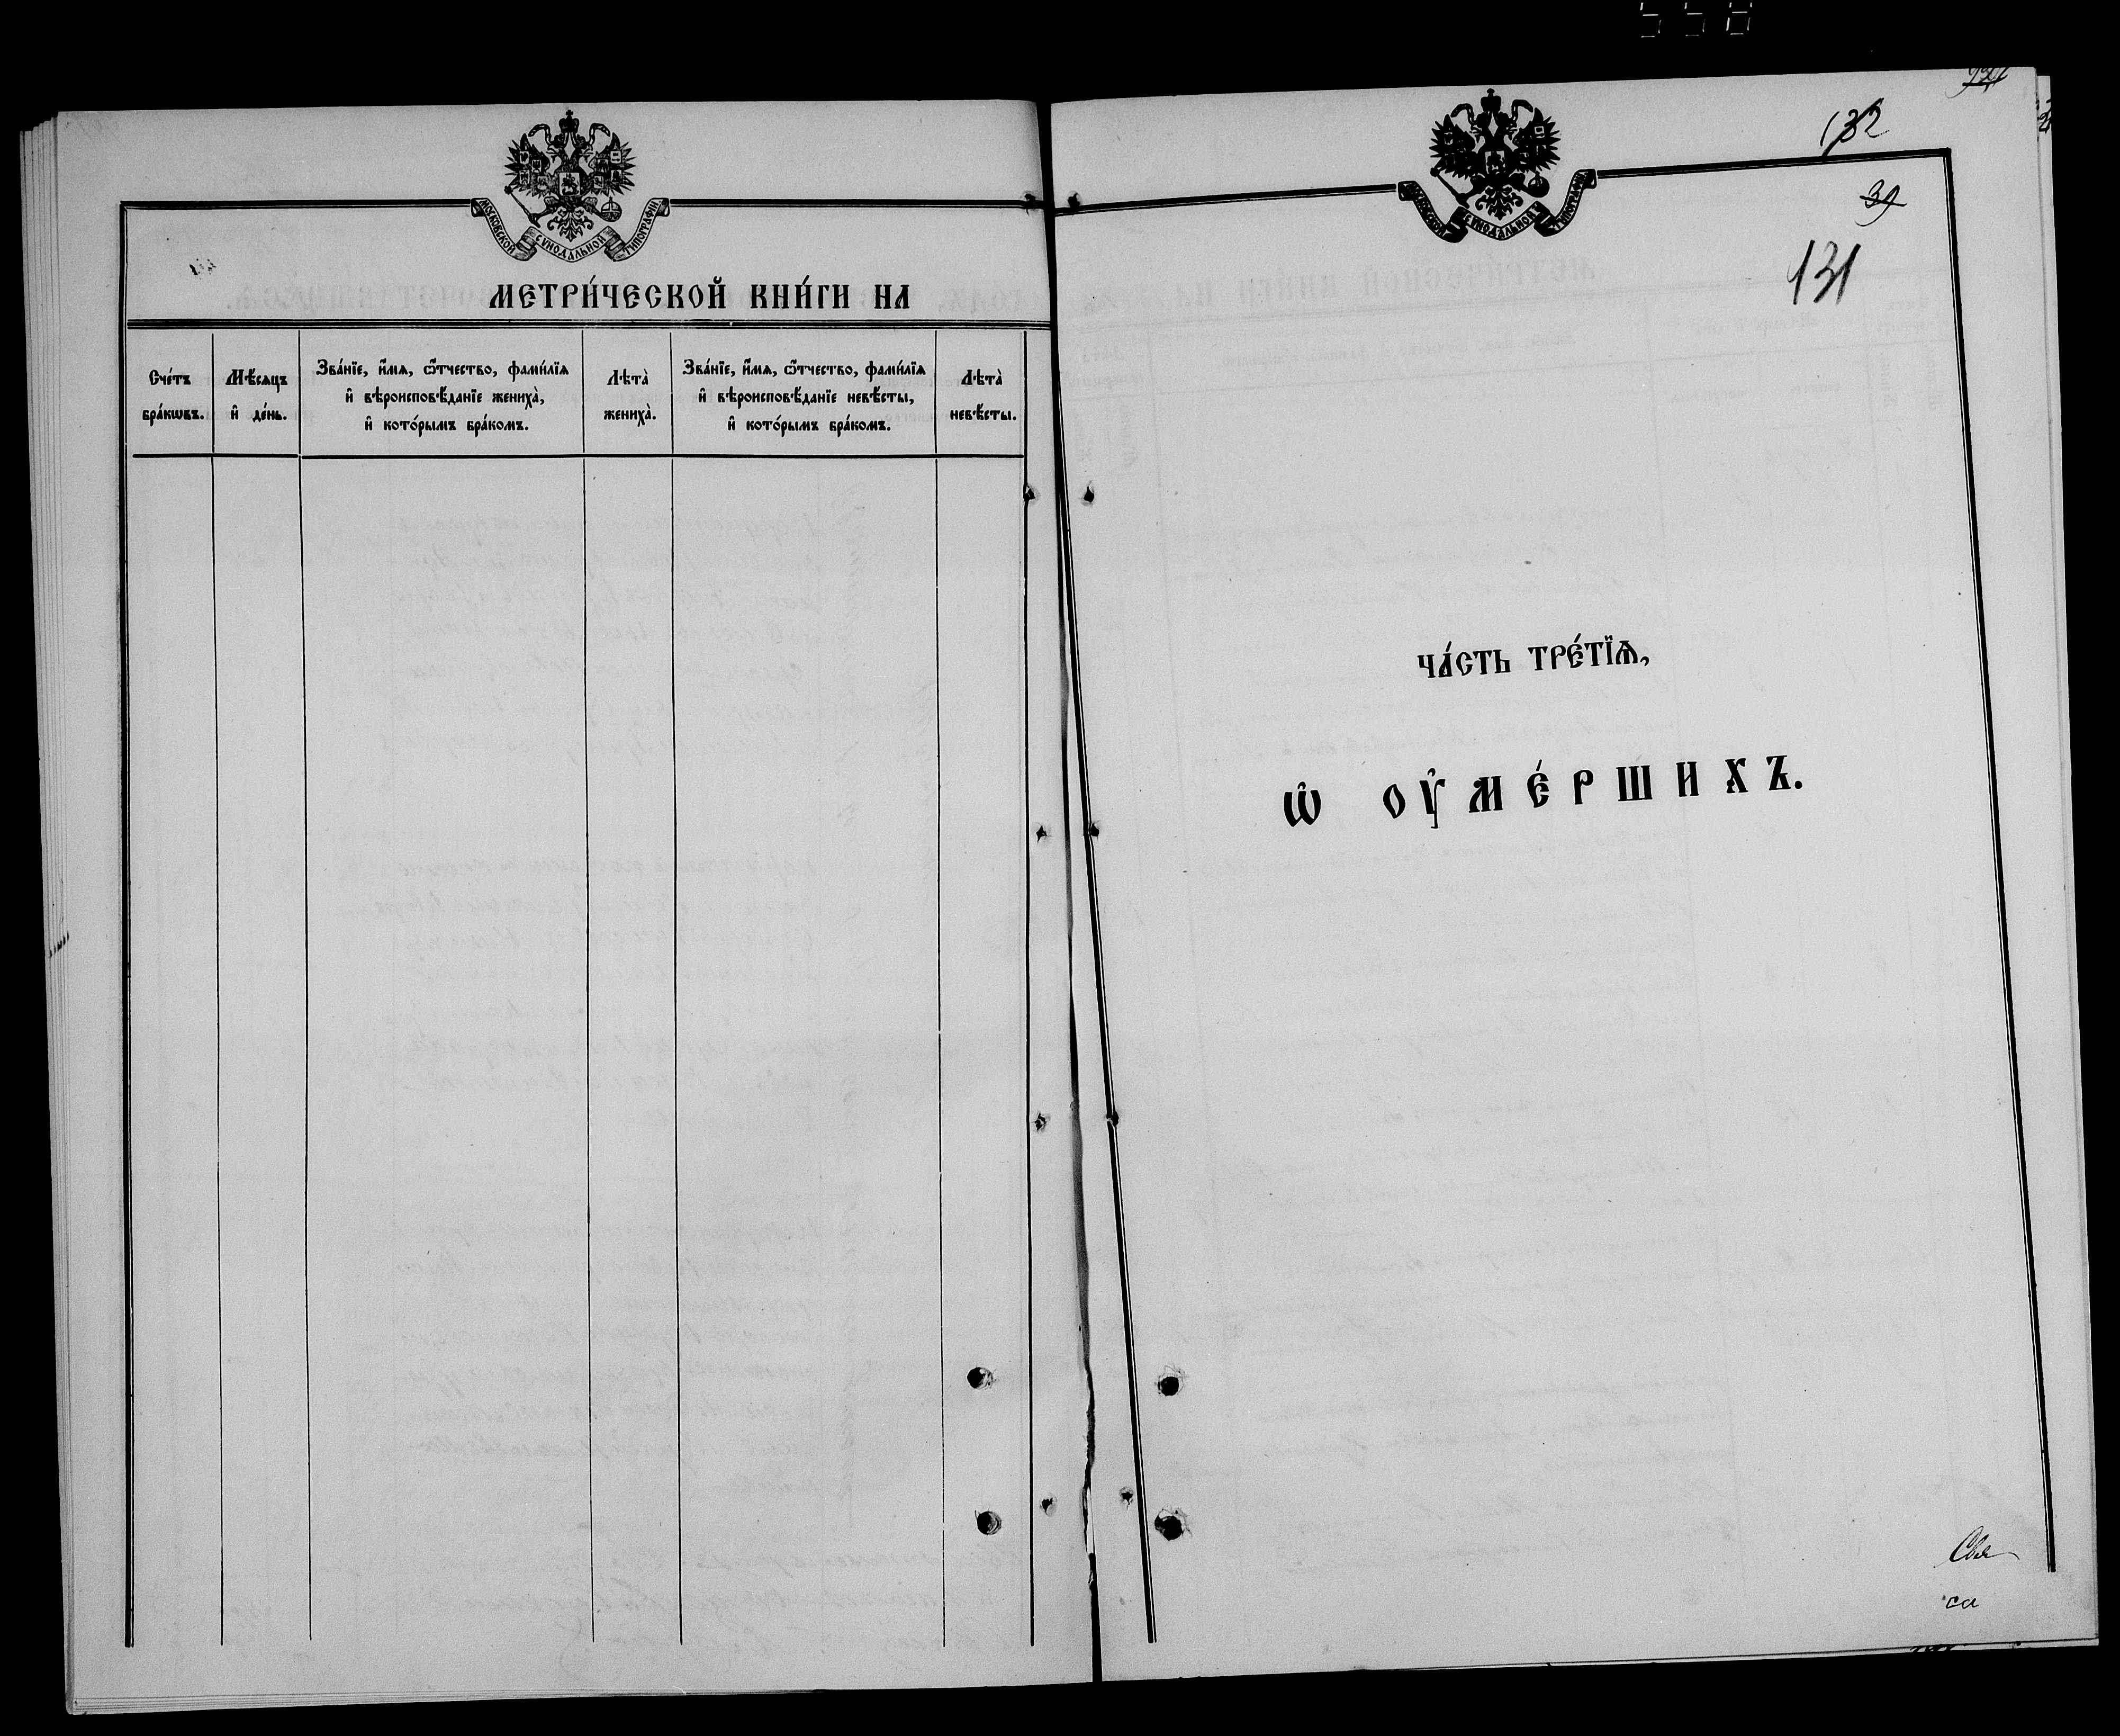 558
МОСКОВСКОЙ СѴНОДАЛЬНОЙ ТИПОГРАФІИ
МЕТРИ́ЧЕСКОЙ КНИ́ГИ НА
Сче́тъ бра́кѡвъ.
Мѣ́сяцъ и҆ де́нь.
Зва́нїе, и҆́мѧ, ѻ҆́тчество, фами́лїѧ
и҆ вѣроисповѣ́данїе женихà,
и҆ кото́рымъ бра́комъ.
Лѣтà женихà.
Зва́нїе, и҆́мѧ, ѻ҆́тчество, фами́лїѧ
и҆ вѣроисповѣ́данїе невѣ́сты,
и҆ кото́рымъ бра́комъ.
Лѣтà невѣ́сты.
132
МОСКОВСКОЙ СѴНОДАЛЬНОЙ ТИПОГРАФІИ
39
131
ЧА́СТЬ ТРЕ́ТЇѦ,
Ѡ҆ ОУ҆МЕ́РШИХЪ.
Свя
са